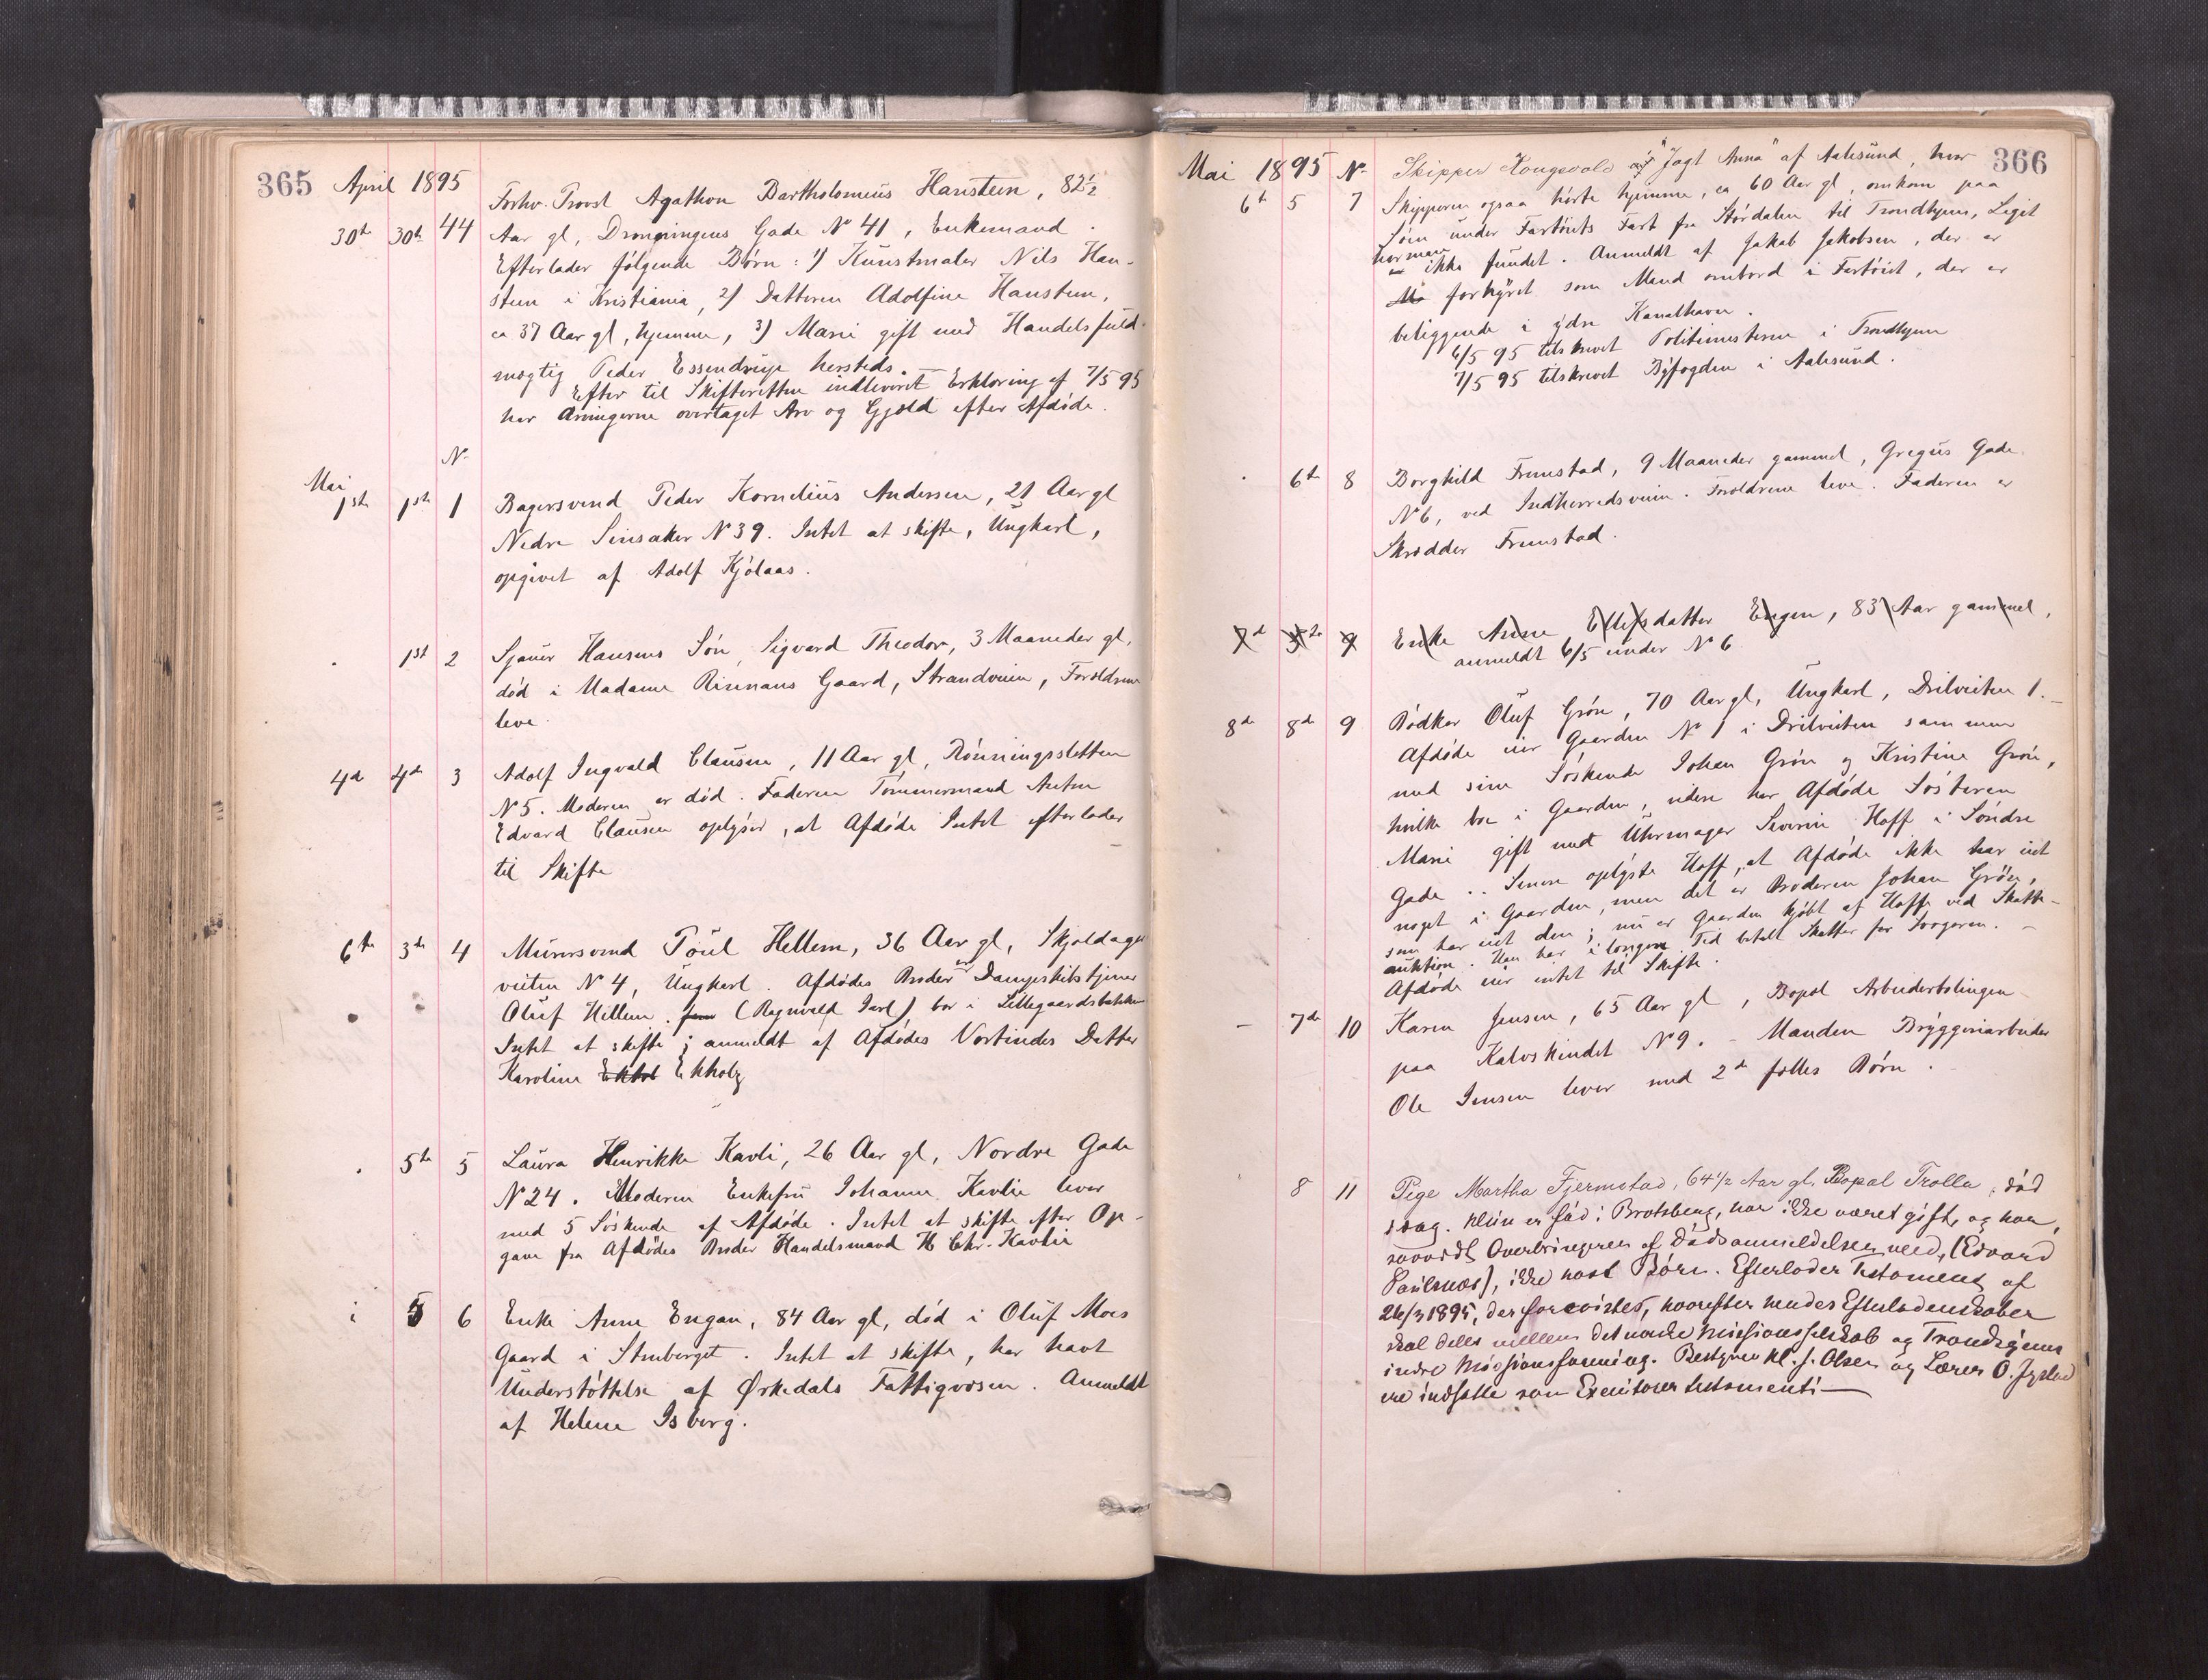 365 April 1895
Forhv. Provst Agathon Bartholomeus Hansteen, 82½
30te 30te 44 Aar gl, Dronningens Gade No 41, Enkemand.
Efterlader følgende Børn: 1) Kunstmaler Nils Han-
steen i Kristiania, 2) Datteren Adolfine Hansteen,
ca 37 Aar gl, hjemme, 3) Marie gift med Handelsfuld-
mægtig Peder Essendrop hersteds.
Efter til Skifteretten indleveret Erklæring af 7/5 95
har Arvingerne overtaget Arv og Gjæld efter Afdøde.
N.
Mai
1ste 1ste 1 Bagersvend Peder Kornelius Andersen, 21 Aar gl
Nedre Sinsaker N 39. Intet at skifte, Ungkarl,
opgivet af Adolf Kjølaas.
1st 2 Sjauer Hansens Søn, Sigvard Theodor, 3 Maaneder gl,
død i Madame Rinnans Gaard, Strandveien, Forældrene
leve.
4de 4de 3 Adolf Ingvald Clausen, 11 Aar gl, Rønningsletten
N 5. Moderen er død. Faderen Tømmermand Anton
Edvard Clausen oplyser, at Afdøde Intet efterlader
til Skifte
6te 3de 4 Murersvend Poul Hellem, 36 Aar gl, Skjoldager
veiten N 4, Ungkarl. Afdødes Broder er Dampskibstjener
Oluf Hellem. (Ragnvald Jarl), bor i Lillegaardsbakken
Intet at skifte; anmeldt af Afdødes Vertindes Datter
Karoline Ekhol Ekholg
5te 5 Laura Henrikke Kavli, 26 Aar gl, Nordre Gade
N 24. Moderen Enkefru Johanne Kavlie lever
med 5 Søskende af Afdøde. Intet at skifte efter Op-
gave fra Afdødes Broder Handelsmand H Chr. Kavlie
i 5 6 Enke Anne Engan, 84 Aar gl, død i Oluf Moes
Gaard i Stenberget. Intet at skifte, har havt
Understøttelse af Ørkedals Fattigvæsen. Anmeldt
af Helene Isberg.
366
Mai 1895 N. Skipper Kongsvold af "Jagt Anna" af Aalesund, hvor
6te 5 7 Skipperen ogsaa hørte hjemme, ca 60 Aar gl, omkom paa
Søen under Fartøiets Fart fra Størdalen til Trondhjem, Liget
har man ikke fundet. Anmeldt af Jakob Jakobsen, der er
forhyret som Mand ombord i Fartøiet, der er
beliggende i ydre Kanalhavn.
6/5 95 tilskrevet Politimesteren i Trondhjem
7/5 95 tilskrevet Byfogden i Aalesund.
6te 8 Borghild Fremstad, 9 Maaneder gammel, Gregus Gade
N 6, ved Indherredsveien. Forældrene leve. Faderen er
Skrædder Fremstad.
7de 9 Enke Anne Ellefsdatter Engen, 83 Aar gammel,
anmeldt 6/5 under N 6
8de 8de 9 Bødker Oluf Grøn, 70 Aar gl, Ungkarl, Dritveiten 1.
Afdøde eier Gaarden No 1 i Dritveiten sammen
med sine Søskende Johan Grøn og Kristine Grøn,
hvilke bor i Gaarden, videre har Afdøde Søsteren
Marie gift med Uhrmager Severin Hoff i Søndre
Gade.. Senere oplyste Hoff, at Afdøde ikke har eiet
noget i Gaarden, men det er Broderen Johan Grøn,
som har eiet den; nu er Gaarden kjøbt af Hoff ved Skatte-
auktion. Han har i længere Tid betalt Skatter for Svogeren.
Afdøde eier intet til Skifte.
7de 10 Karen Jensen, 65 Aar gl, Bopæl Arbeiderboligen
paa Kalvskindet N 9. - Manden Bryggeriarbeider
Ole Jensen lever med 2de fælles Børn.
8 11 Pige Martha Fjermstad, 64 1/2 Aar gl. Bopæl Trolla, død
idag. Hun er fød i Bratsberg, har ikke været gift, og har,
saavidt Overbringeren af Dødsanmeldelsen veed, (Edvard
Paulsnæs), ikke havt Børn. Efterlader Testament af
26/3 1895, der forevistes, hvorefter hendes Efterladenskaber
skal deles mellem det norske Missionsselskab og Trondhjems
indre Missionsforening. Bestyrer Kl. J. Olsen og Lærer O. Jystad
ere indsatte som Executores testamenti